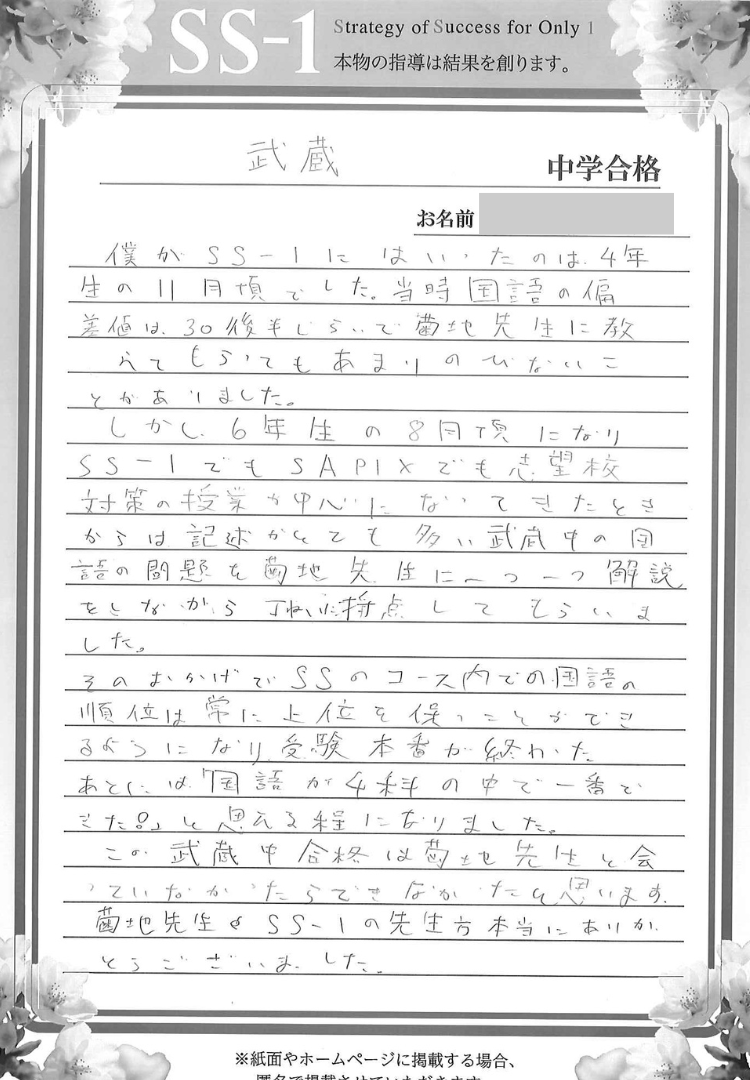 SS-1 Strategy of Success for Only 1
本物の指導は結果を創ります。
武蔵 中学合格
お名前
僕がSS-1にはいったのは、4年
生の11月頃でした。当時国語の偏
差値は、30後半ぐらいで菊地先生に教
えてもらってもあまりのびないこ
とがありました。
しかし、6年生の8月頃になり
SS-1でもSAPIXでも志望校
対策の授業が中心になってきたとき
からは、記述がとても多い武蔵中の国
語の問題を菊地先生に一つ一つ解説
をしながら丁ねいに採点してもらいま
した。
そのおかげでSSのコース内での国語の
順位は常に上位を保つことができ
るようになり、受験本番が終わった
あとには「国語が4科の中で一番で
きた。」と思える程になりました。
この武蔵中合格は菊地先生と会
っていなかったらできなかったと思います。
菊地先生とSS-1の先生方本当にありが
とうございました。
※紙面やホームページに掲載する場合、
匿名で掲載させていただきます。